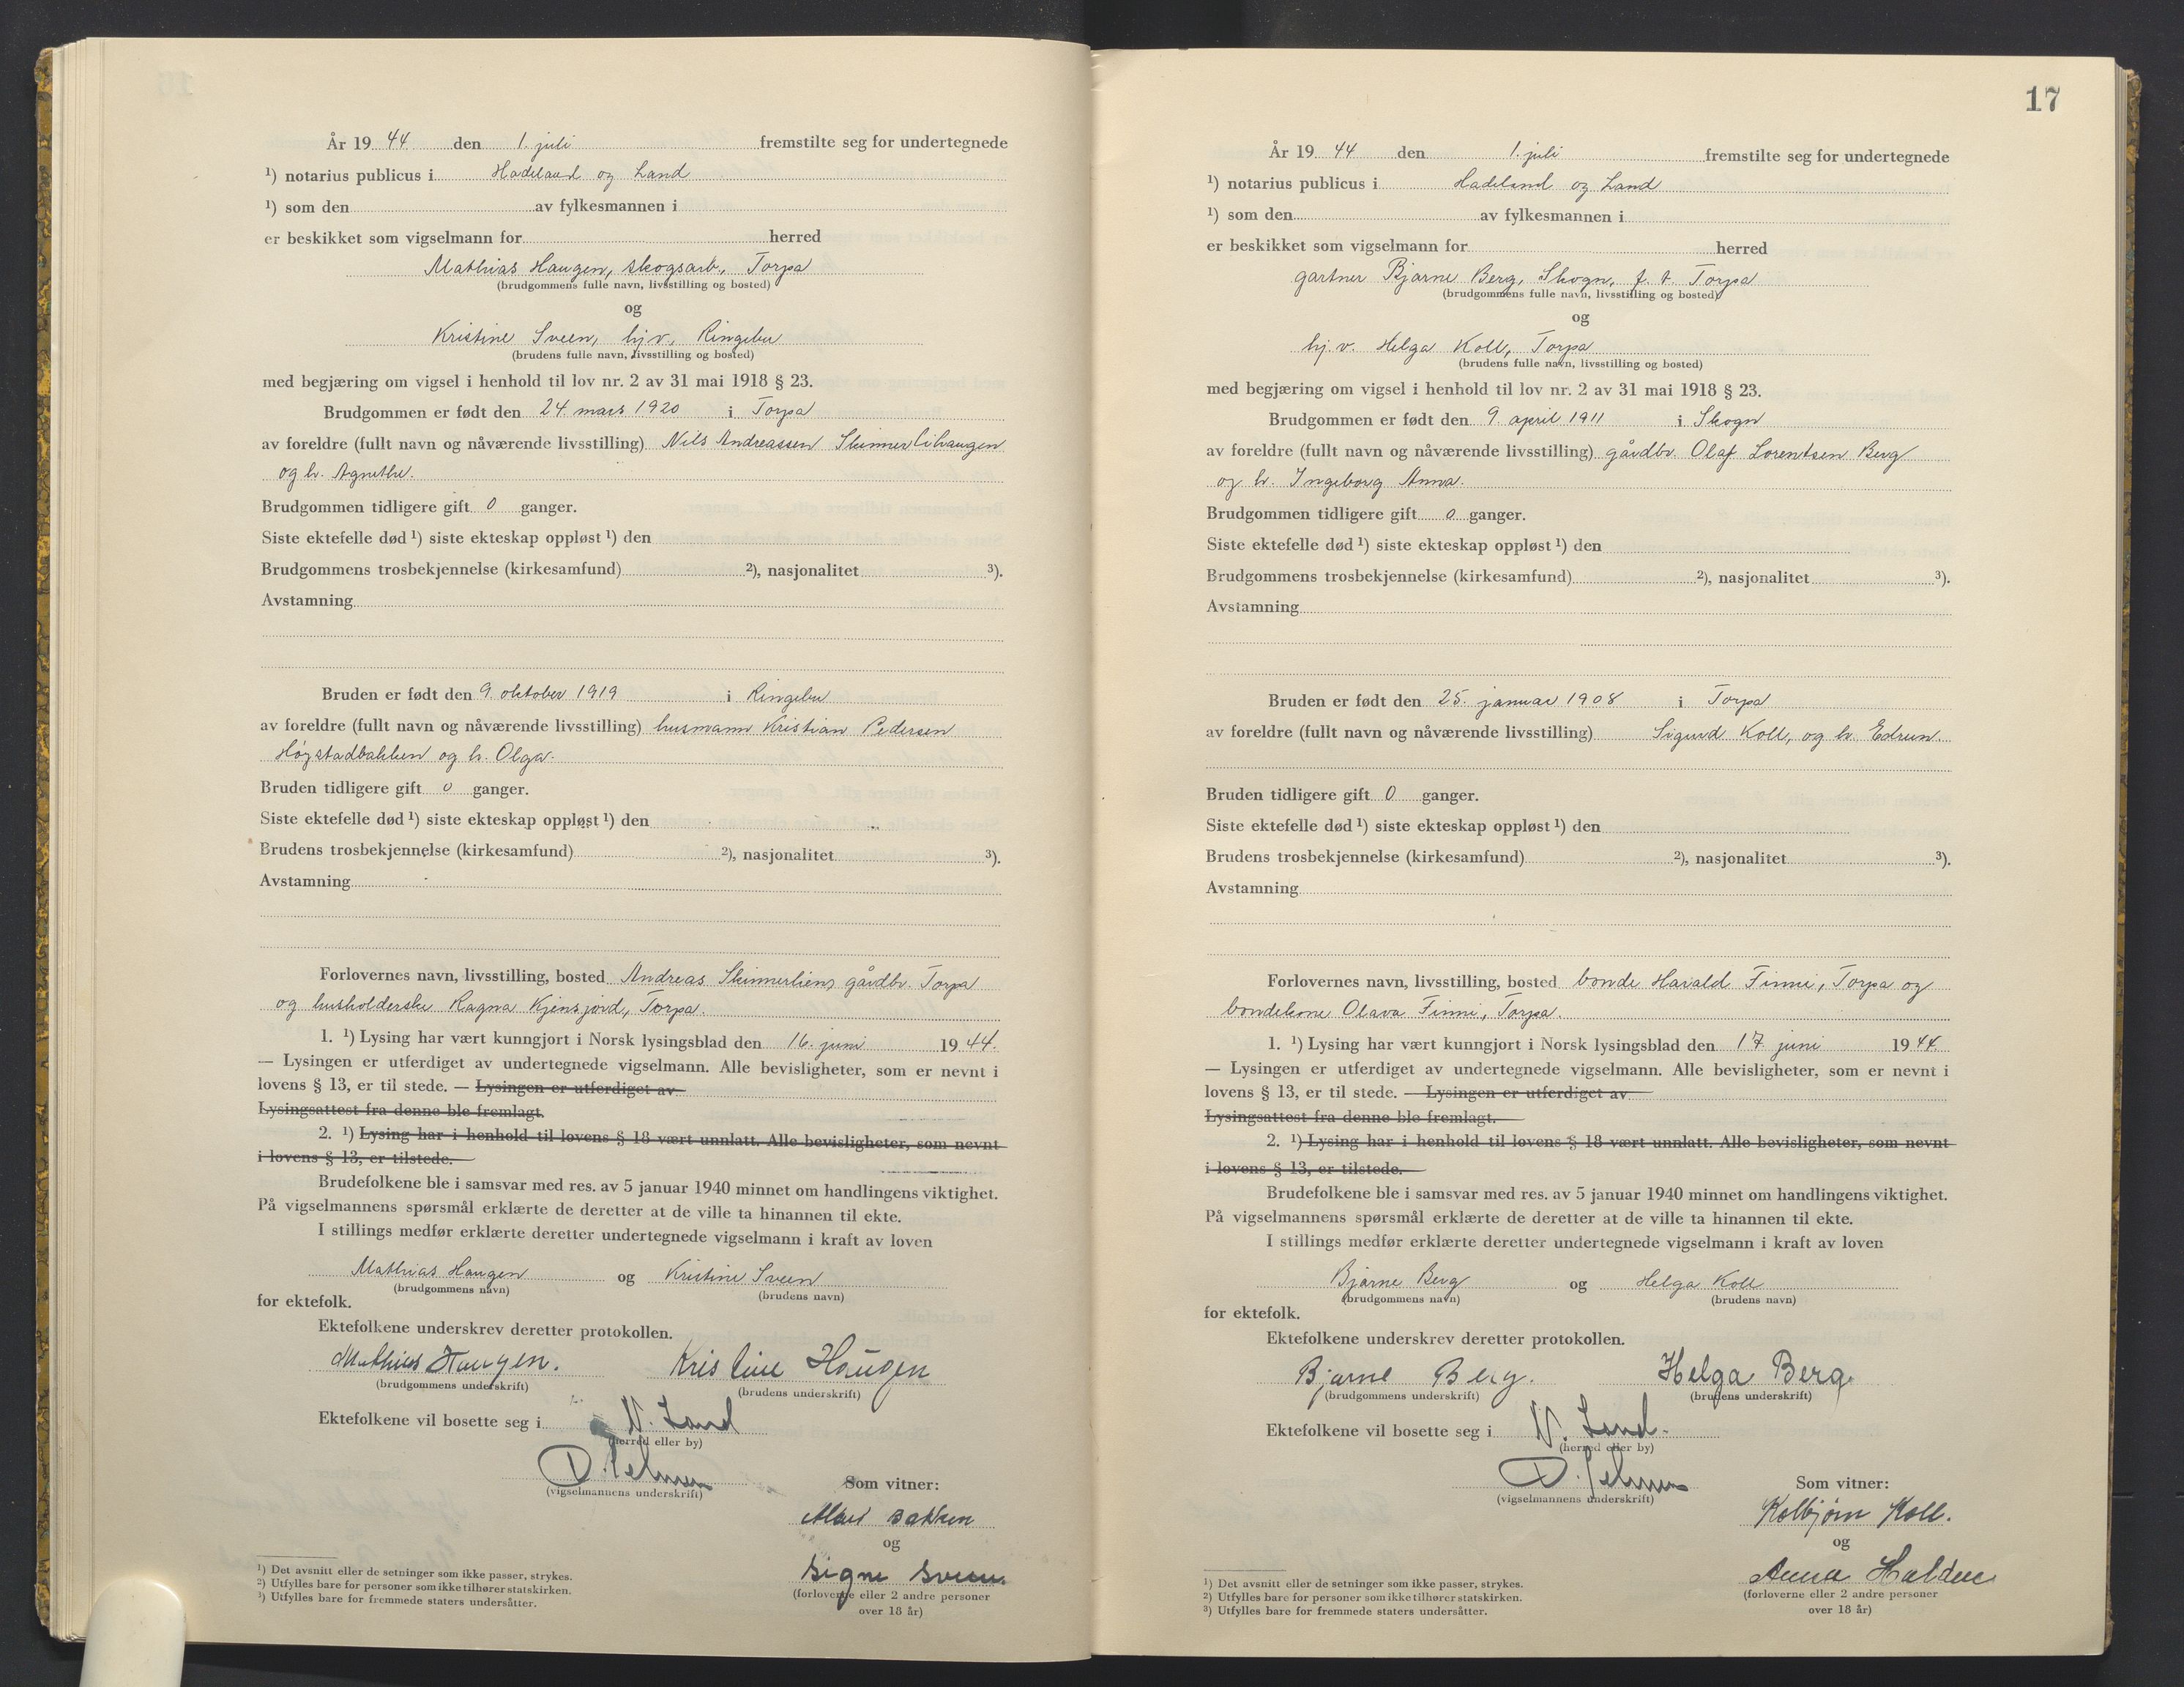 År 19 44 den 1. juli fremstilte seg for undertegnede
¹) notarius publicus i Hadeland og Land
¹) som den av fylkesmannen i
er beskikket som vigselmann for herred
Mathias Haugen, skogsarb., Torpa
(brudgommens fulle navn, livsstilling og bosted)
og
Kristine Sveen, hj.v., Ringebu
(brudens fulle navn, livsstilling og bosted)
med begjæring om vigsel i henhold til lov nr. 2 av 31 mai 1918 § 23.
Brudgommen er født den 24. mars 1920 i Torpa
av foreldre (fullt navn og nåværende livsstilling) Nils Andreassen Skinnerlihaugen
og h. Agnethe.
Brudgommen tidligere gift 0 ganger.
Siste ektefelle død ¹) siste ekteskap oppløst ¹) den
Brudgommens trosbekjennelse (kirkesamfund) ²), nasjonalitet ³).
Avstamning
Bruden er født den 9. oktober 1919 i Ringebu
av foreldre (fullt navn og nåværende livsstilling) husmann Kristian Pedersen
Høystadbakken og h. Olga.
Bruden tidligere gift 0 ganger.
Siste ektefelle død ¹) siste ekteskap oppløst ¹) den
Brudens trosbekjennelse (kirkesamfund) ²), nasjonalitet ³).
Avstamning
Forlovernes navn, livsstilling, bosted Andreas Skinnerlien, gårdbr. Torpa
og husholderske Ragna, Torpa.
1. ¹) Lysing har vært kunngjort i Norsk lysingsblad den 16. juni 19 44.
— Lysingen er utferdiget av undertegnede vigselmann. Alle bevisligheter, som er nevnt i
lovens § 13, er til stede. — Lysingen er utferdiget av
Lysingsattest fra denne ble fremlagt.
2. ¹) Lysing har i henhold til lovens § 18 vært unnlatt. Alle bevisligheter, som nevnt
i lovens § 13, er tilstede.
Brudefolkene ble i samsvar med res. av 5 januar 1940 minnet om handlingens viktighet.
På vigselmannens spørsmål erklærte de deretter at de ville ta hinannen til ekte.
I stillings medfør erklærte deretter undertegnede vigselmann i kraft av loven
Mathias Haugen og Kristine Sveen
(brudgommens navn) (brudens navn)
for ektefolk.
Ektefolkene underskrev deretter protokollen.
Mathias Haugen. Kristine Haugen
(brudgommens underskrift) (brudens underskrift)
Ektefolkene vil bosette seg i N. Land
(herred eller by)
(vigselmannens underskrift)
Som vitner:
Bakken
og
Signe Sveen.
(forloverne eller 2 andre personer
over 18 år)
¹) Det avsnitt eller de setninger som ikke passer, strykes.
²) Utfylles bare for personer som ikke tilhører statskirken.
³) Utfylles bare for fremmede staters undersåtter.
17
År 19 44 den 1. juli fremstilte seg for undertegnede
¹) notarius publicus i Hadeland og Land
¹) som den av fylkesmannen i
er beskikket som vigselmann for herred
gartner Bjarne Berg, Skogn, f. t. Torpa
(brudgommens fulle navn, livsstilling og bosted)
og
hj.v. Helga Koll, Torpa
(brudens fulle navn, livsstilling og bosted)
med begjæring om vigsel i henhold til lov nr. 2 av 31 mai 1918 § 23.
Brudgommen er født den 9. april 1911 i Skogn
av foreldre (fullt navn og nåværende livsstilling) gårdbr. Olaf Lorentsen Berg
og h. Ingeborg Anna.
Brudgommen tidligere gift 0 ganger.
Siste ektefelle død ¹) siste ekteskap oppløst ¹) den
Brudgommens trosbekjennelse (kirkesamfund) ²), nasjonalitet ³).
Avstamning
Bruden er født den 25. januar 1908 i Torpa
av foreldre (fullt navn og nåværende livsstilling) Sigurd Koll, og h. Edrun.
Bruden tidligere gift 0 ganger.
Siste ektefelle død ¹) siste ekteskap oppløst ¹) den
Brudens trosbekjennelse (kirkesamfund) ²), nasjonalitet ³).
Avstamning
Forlovernes navn, livsstilling, bosted bonde Harald Finni, Torpa og
bondekone Olava Finni, Torpa.
1. ¹) Lysing har vært kunngjort i Norsk lysingsblad den 17 juni 19 44
— Lysingen er utferdiget av undertegnede vigselmann. Alle bevisligheter, som er nevnt i
lovens § 13, er til stede. — Lysingen er utferdiget av
Lysingsattest fra denne ble fremlagt.
2. ¹) Lysing har i henhold til lovens § 18 vært unnlatt. Alle bevisligheter, som nevnt
i lovens § 13, er tilstede.
Brudefolkene ble i samsvar med res. av 5 januar 1940 minnet om handlingens viktighet.
På vigselmannens spørsmål erklærte de deretter at de ville ta hinannen til ekte.
I stillings medfør erklærte deretter undertegnede vigselmann i kraft av loven
Bjarne Berg og Helga Koll
(brudgommens navn) (brudens navn)
for ektefolk.
Ektefolkene underskrev deretter protokollen.
Bjarne Berg. Helga Berg.
(brudgommens underskrift) (brudens underskrift)
Ektefolkene vil bosette seg i N. Land.
(herred eller by)
(vigselmannens underskrift)
Som vitner:
Kolbjørn Koll.
og
Anna Halden
(forloverne eller 2 andre personer
over 18 år)
¹) Det avsnitt eller de setninger som ikke passer, strykes.
²) Utfylles bare for personer som ikke tilhører statskirken.
³) Utfylles bare for fremmede staters undersåtter.